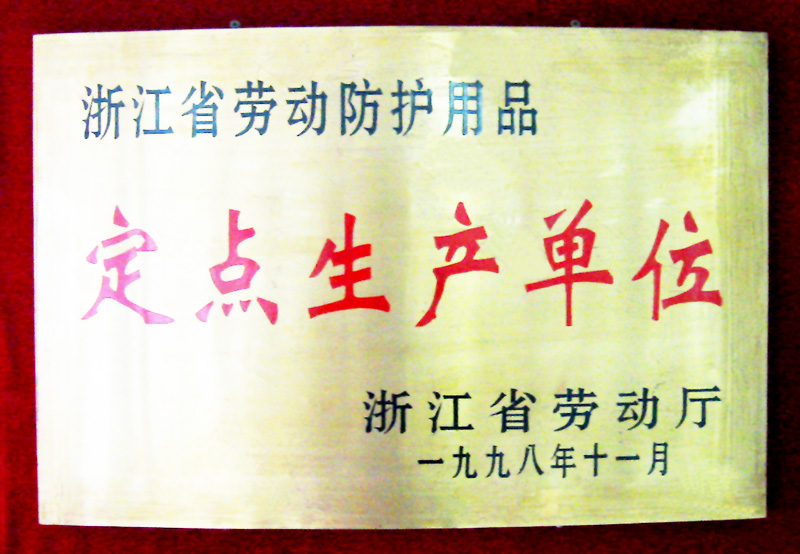 浙江省劳动防护用品
定点生产单位
浙江省劳动厅
一九九八年十一月